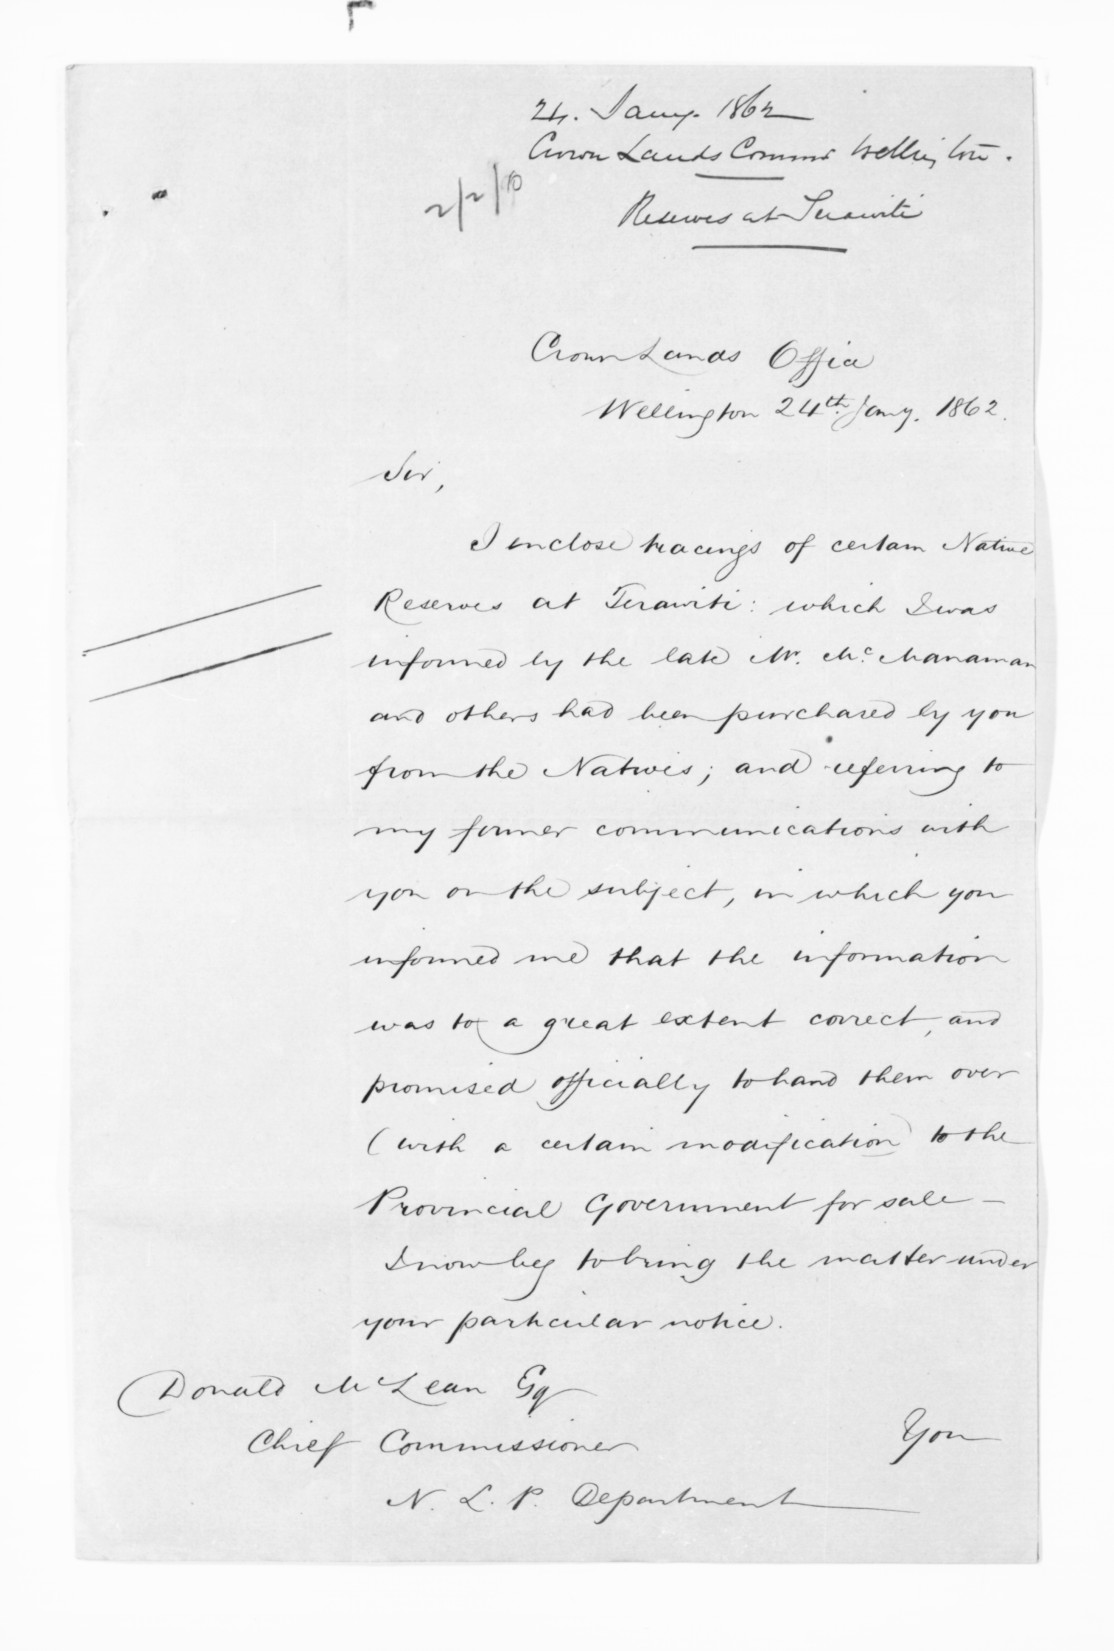 24. Jany. 1862
Crown Lands Commr Wellington.
Reserves at Terawiti
Crown Lands Office
Wellington 24th. Jany. 1862.
Sir,
I enclose tracings of certain Native
Reserves at Terawiti: which I was
informed by the late Mr. McManaman
and others had been purchased by you
from the Natives; and referring to
my former communications with
you on the subject, in which you
informed me that the information
was to a great extent correct, and
promised officially to hand them over
(with a certain modification) to the
Provincial Government for sale —
I now beg to bring the matter under
your particular notice.
Donald McLean Esq
Chief Commissioner
You
N. L. P. Department